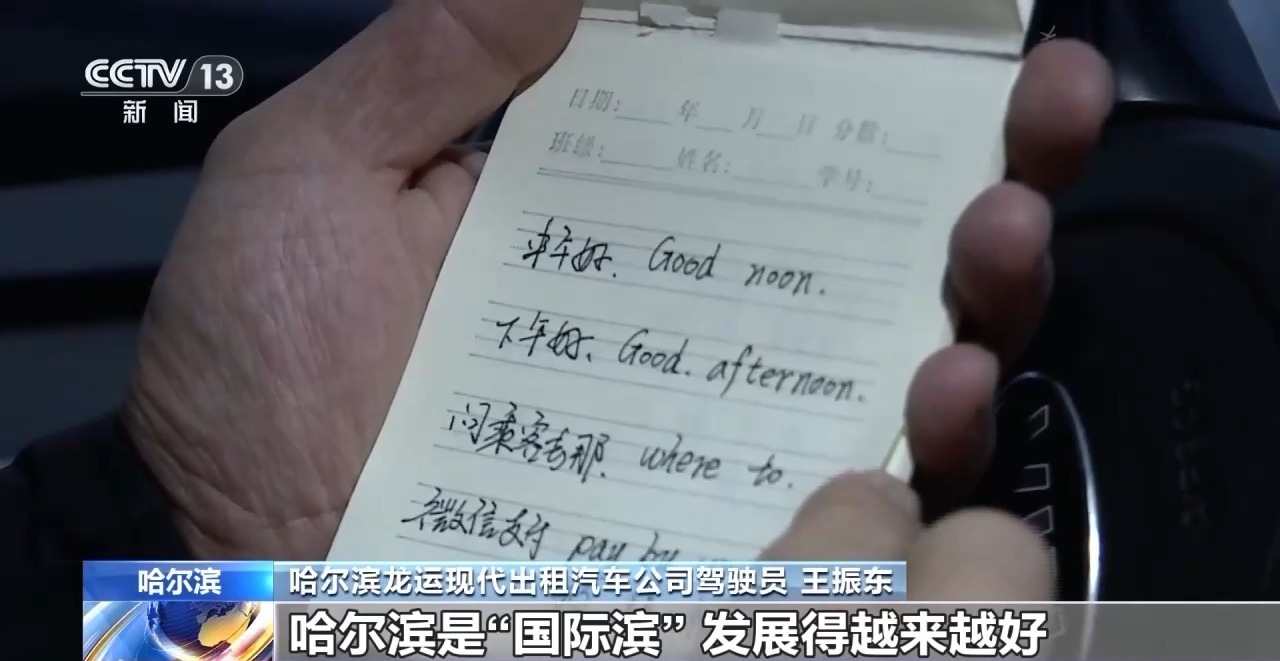 CCTV 13
新闻
日期:____年__月__日 分数:____
班级:____ 姓名:____ 学号:____
中午好. Good noon.
下午好. Good. afternoon.
问乘客去那. where to.
微信支付 pay by
哈尔滨
哈尔滨龙运现代出租汽车公司驾驶员 王振东
哈尔滨是“国际滨” 发展得越来越好